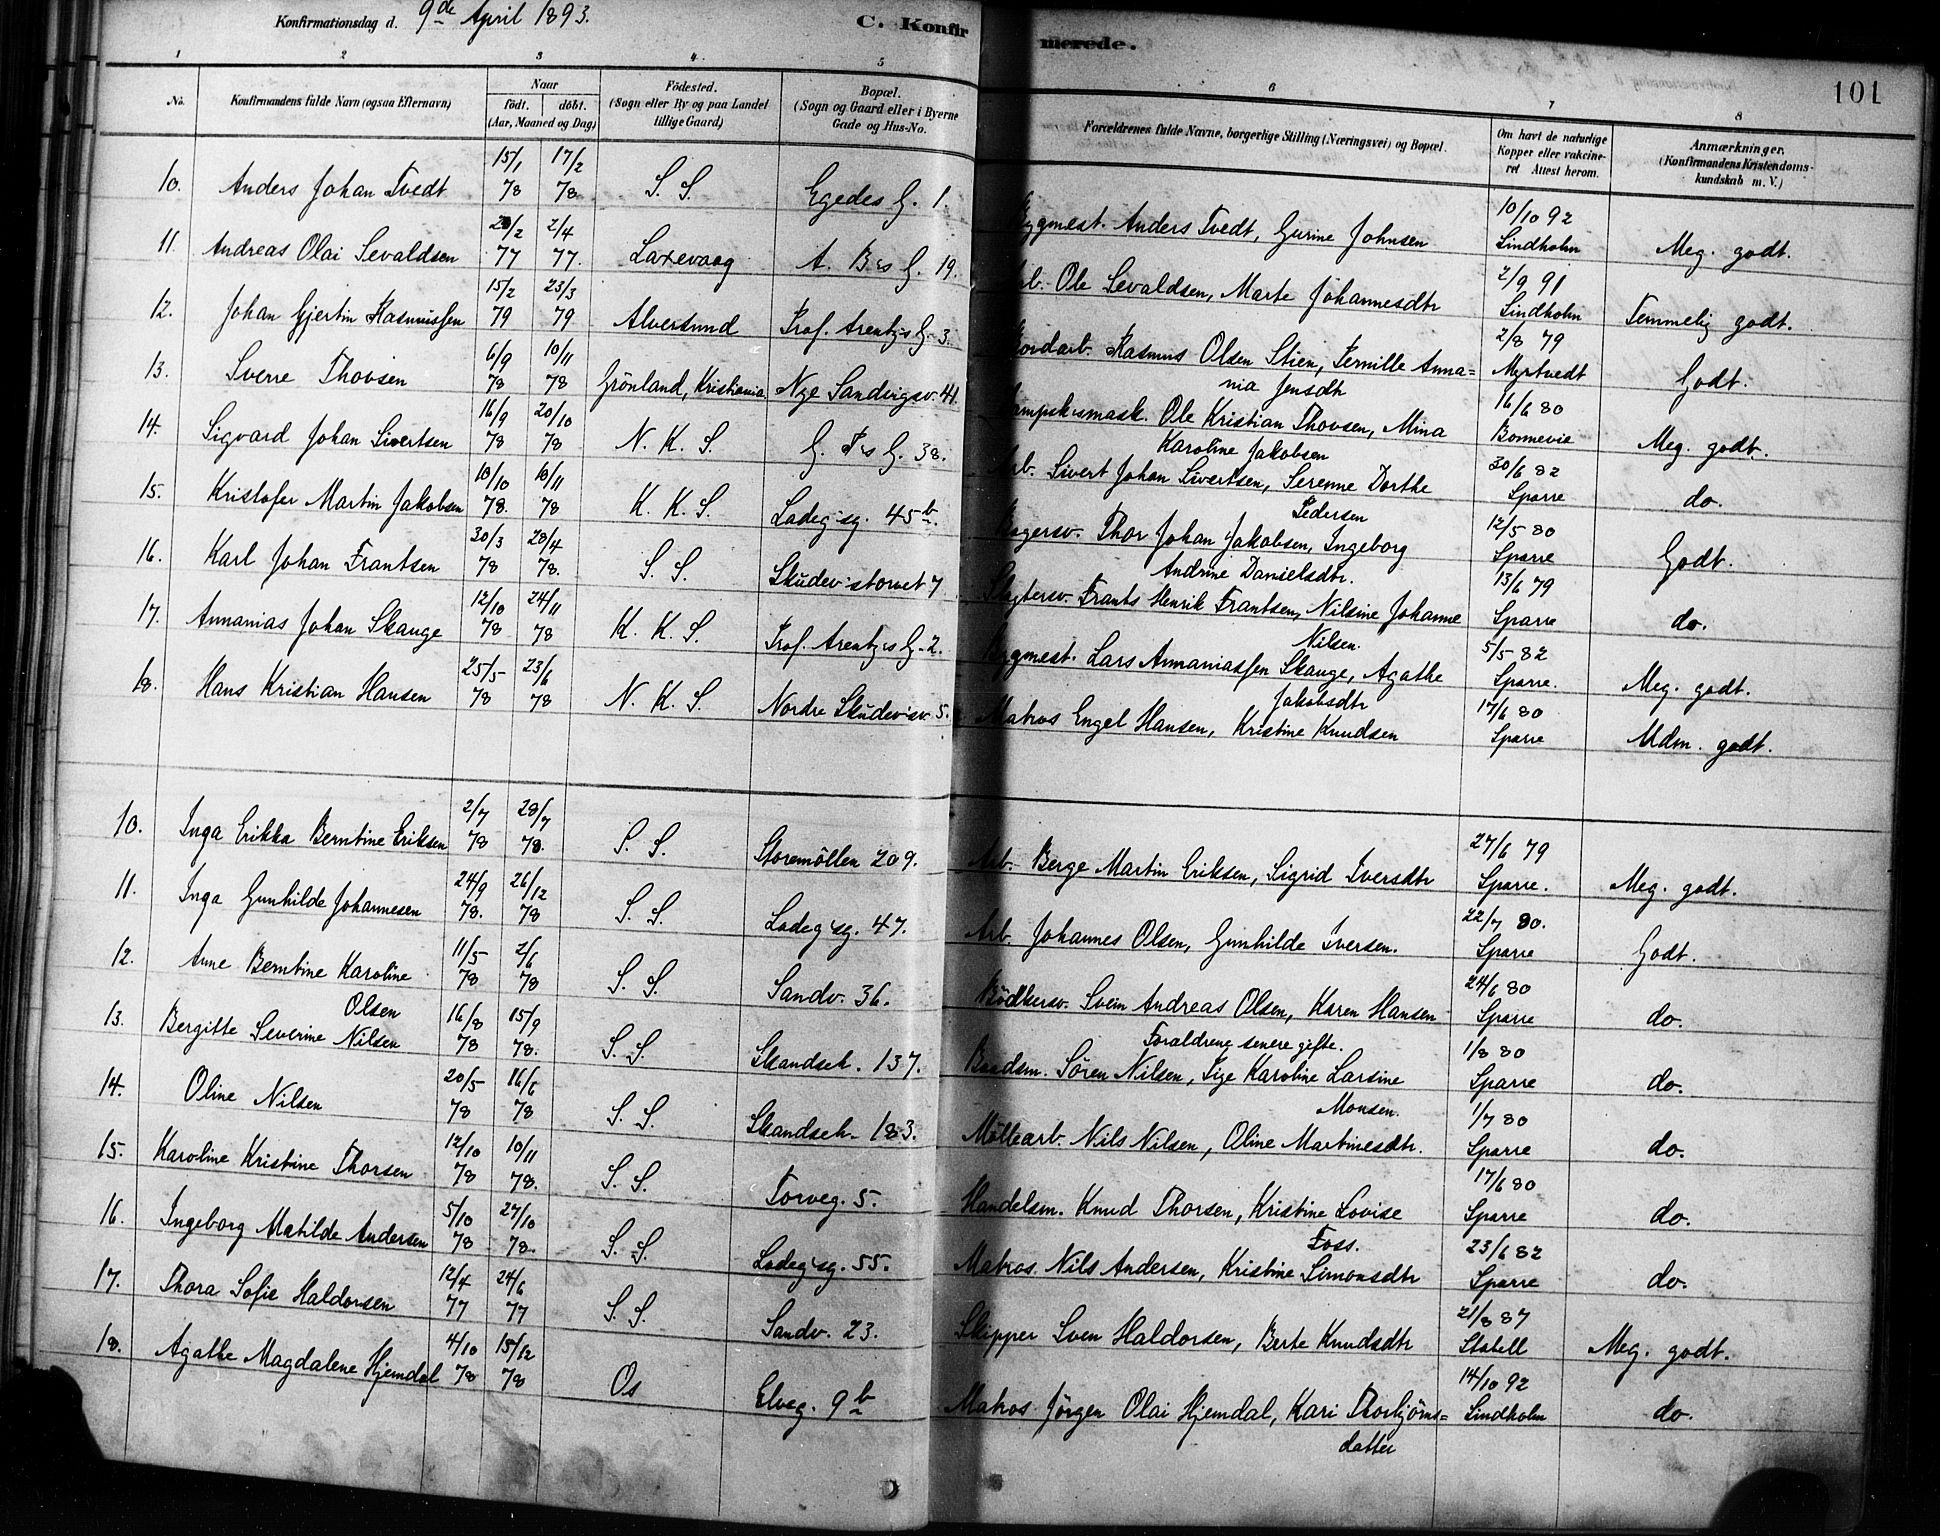 Konfirmationsdag d. 9de April 1893.
C. Konfirmerede.
101
1 2 3 4 5 6 7 8
No.
Konfirmandens fulde Navn (ogsaa Efternavn)
Naar
født. døbt.
(Aar, Maaned og Dag)
Födested.
(Sogn eller By og paa Landet
tillige Gaard)
Bopæl.
(Sogn og Gaard eller i Byerne
Gade og Hus-No.
Forældrenes fulde Navne, borgerlige Stilling (Næringsvei) og Bopæl.
Om havt de naturlige
Kopper eller vakcine-
ret Attest herom.
Anmærkninger.
(Konfirmandens Kristendoms-
kundskab m. V.)
10. Anders Johan Tvedt 15/1 78 17/2 78 S. S. Egedes G. 1. Bygmest. Anders Tvedt, Gurine Johnsen 10/10 92 Lindholm Meg. godt.
11. Andreas Olai Sevaldsen 20/2 77 2/4 77 Laxevaag A. B's G. 19. Arb. Ole Sevaldsen, Marte Johannesdtr 2/9 91 Lindholm Temmelig godt.
12. Johan Gjertin Rasmussen 15/2 79 23/3 79 Alversund Prof. Arentz's G. 3. Jordarb. Rasmus Olsen Stien, Pernille Anna=
nia Jensdtr 2/8 79 Myrtvedt Godt.
13. Sverre Thovsen 6/9 78 10/11 78 Grönland, Kristiania Nye Sandvigsv. 41. Dampsk'smask. Ole Kristian Thovsen, Mina
Karoline Jakobsen 16/6 80 Bonnevie Meg. godt.
14. Sigvard Johan Sivertsen 16/9 78 20/10 78 N. K. S. G. P's G. 38. Arb. Sivert Johan Sivertsen, Serenne Dorthe
Pedersen 30/6 82 Sparre do.
15. Kristofer Martin Jakobsen 10/10 78. 10/11 78 K. K. S. Ladeg'sg. 45b. Bagersv. Thor Johan Jakobsen, Ingeborg
Andrine Danielsdtr. 12/5 80 Sparre Godt.
16. Karl Johan Frantsen 30/3 78 28/4 78. S. S. Skudev'storvet 7 Slagtersv. Frants Henrik Frantsen, Nilsine Johanne
Nilsen. 13/6 79 Sparre do.
17. Annanias Johan Skauge 12/10 78 24/11 78 K. K. S. Prof. Arentz's G. 2. Bygmest. Lars Annaniassen Skauge, Agathe
Jakobsdtr 5/5 82 Sparre. Meg. godt.
18. Hans Kristian Hansen 25/5 78 23/6 78 N. K. S. Nordre Skudev'sv. 5. Matros Engel Hansen, Kristine Knudsen 17/6 80 Sparre Udm. godt.
10. Inga Erikka Berntine Eriksen 2/7 78 28/7 78. S. S. Storemöllen 209. Arb. Berge Martin Eriksen, Sigrid Iversdtr 27/6 79 Sparre. Meg. godt.
11. Inga Gunhilde Johannesen 24/9 78. 26/12 78 S. S. Ladeg'sg. 47. Arb. Johannes Olsen, Gunhilde Iversen. 22/7 80. Sparre Godt.
12. Anne Berntine Karoline
Olsen 11/5 78 2/6 78 S. S. Sandv. 36. Bödkersv. Svein Andreas Olsen, Karen Hansen
Foraldrene senere gifte. 24/6 80 Sparre do.
13. Bergitte Severine Nilsen 16/8 78 15/9 78. S. S. Skandseh. 137. Baadsm. Sören Nilsen, Sige Karoline Larsine
Monsen. 1/8 80 Sparre do.
14. Oline Nilsen 20/5 78 16/6 78 S. S. Skandseh. 183. Möllearb. Nils Nilsen, Oline Martinesdtr. 1/7 80 Sparre do.
15. Karoline Kristine Thorsen 12/10 78 10/11 78. S. S. Torveg. 5. Handelsm. Knud Thorsen, Kristine Lovise
Foss. 17/6 80 Sparre do.
16. Ingeborg Mathilde Andersen 5/10 78 27/10 78. S. S. Ladeg'sg. 55. Matros. Nils Andersen, Kristine Simonsdtr 23/6 82 Sparre do.
17. Thora Sofie Haldorsen 12/4 77 24/6 77 S. S. Sandv. 23. Skipper Sven Haldorsen, Berte Knudsdtr 21/8 87 Stabell Meg. godt.
18. Agathe Magdalene Hjemdal 4/10 78 15/12 78 Os Elveg. 9b Matros Jörgen Olai Hjemdal, Kari Thorbjörns=
datter 14/10 92 Lindholm do.